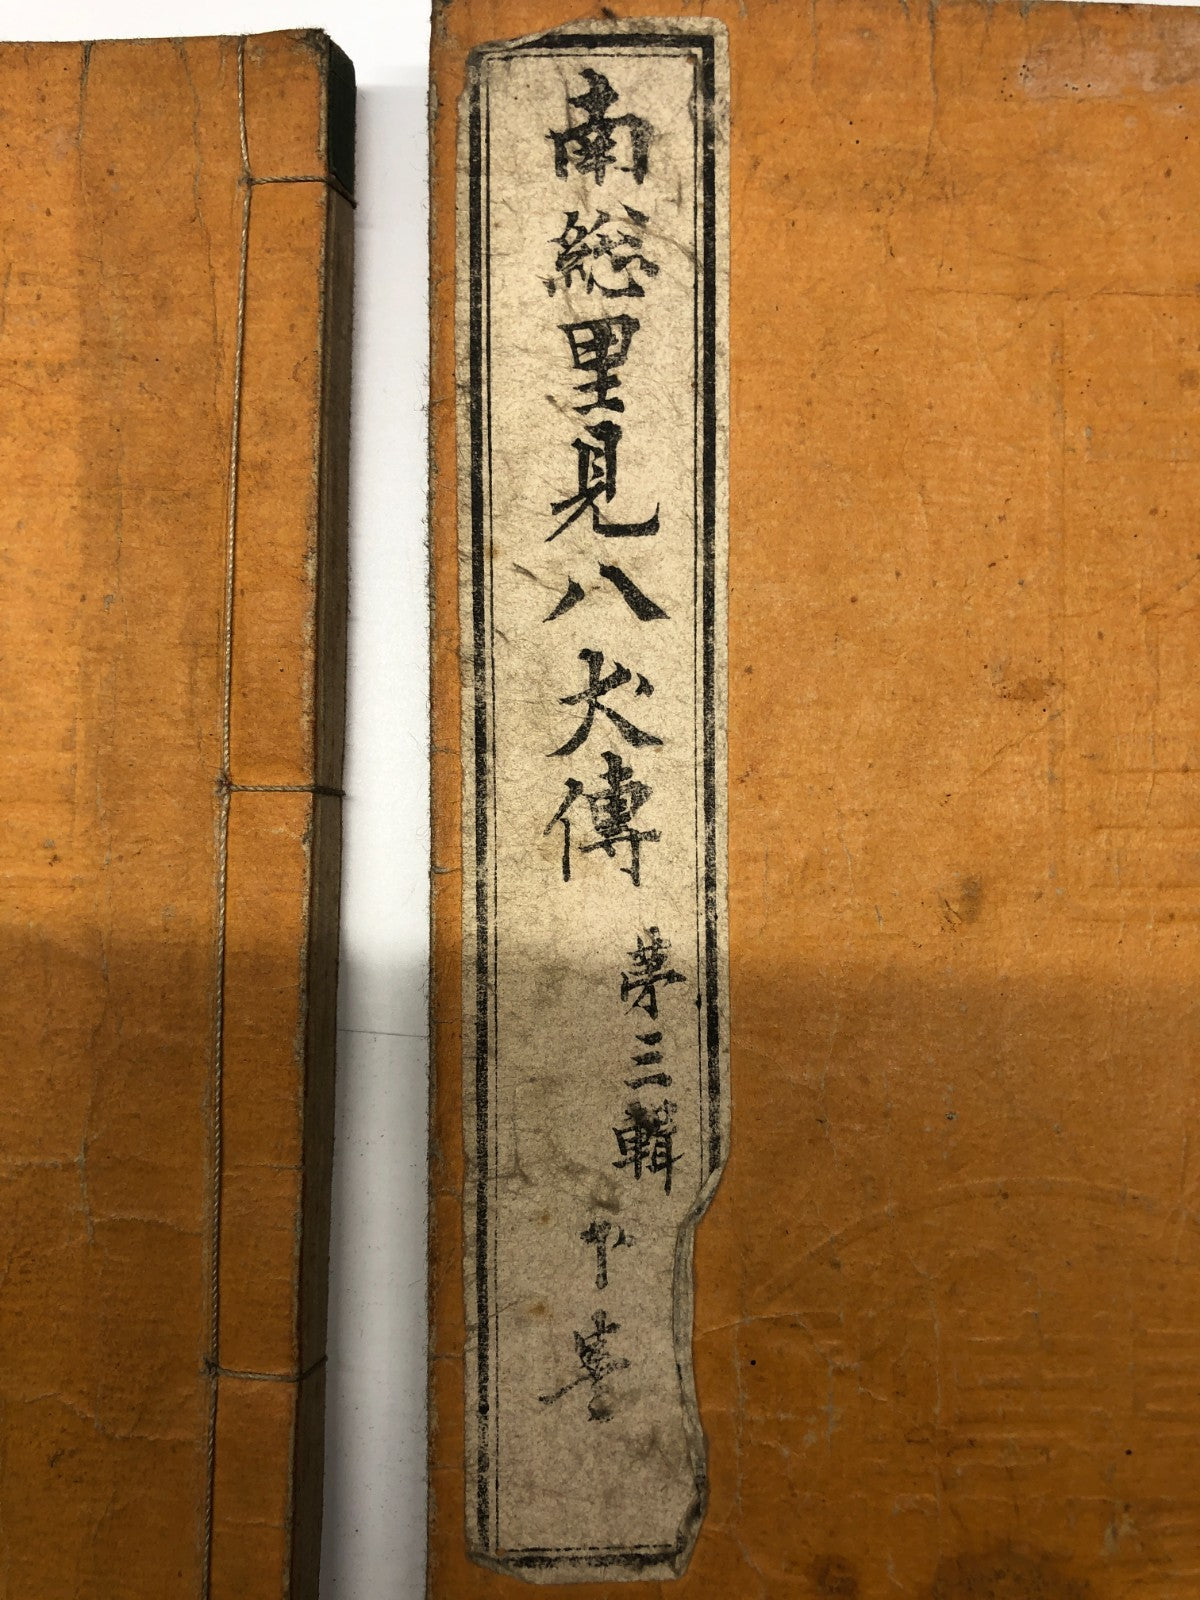 南総里見八犬傳
第三輯
下